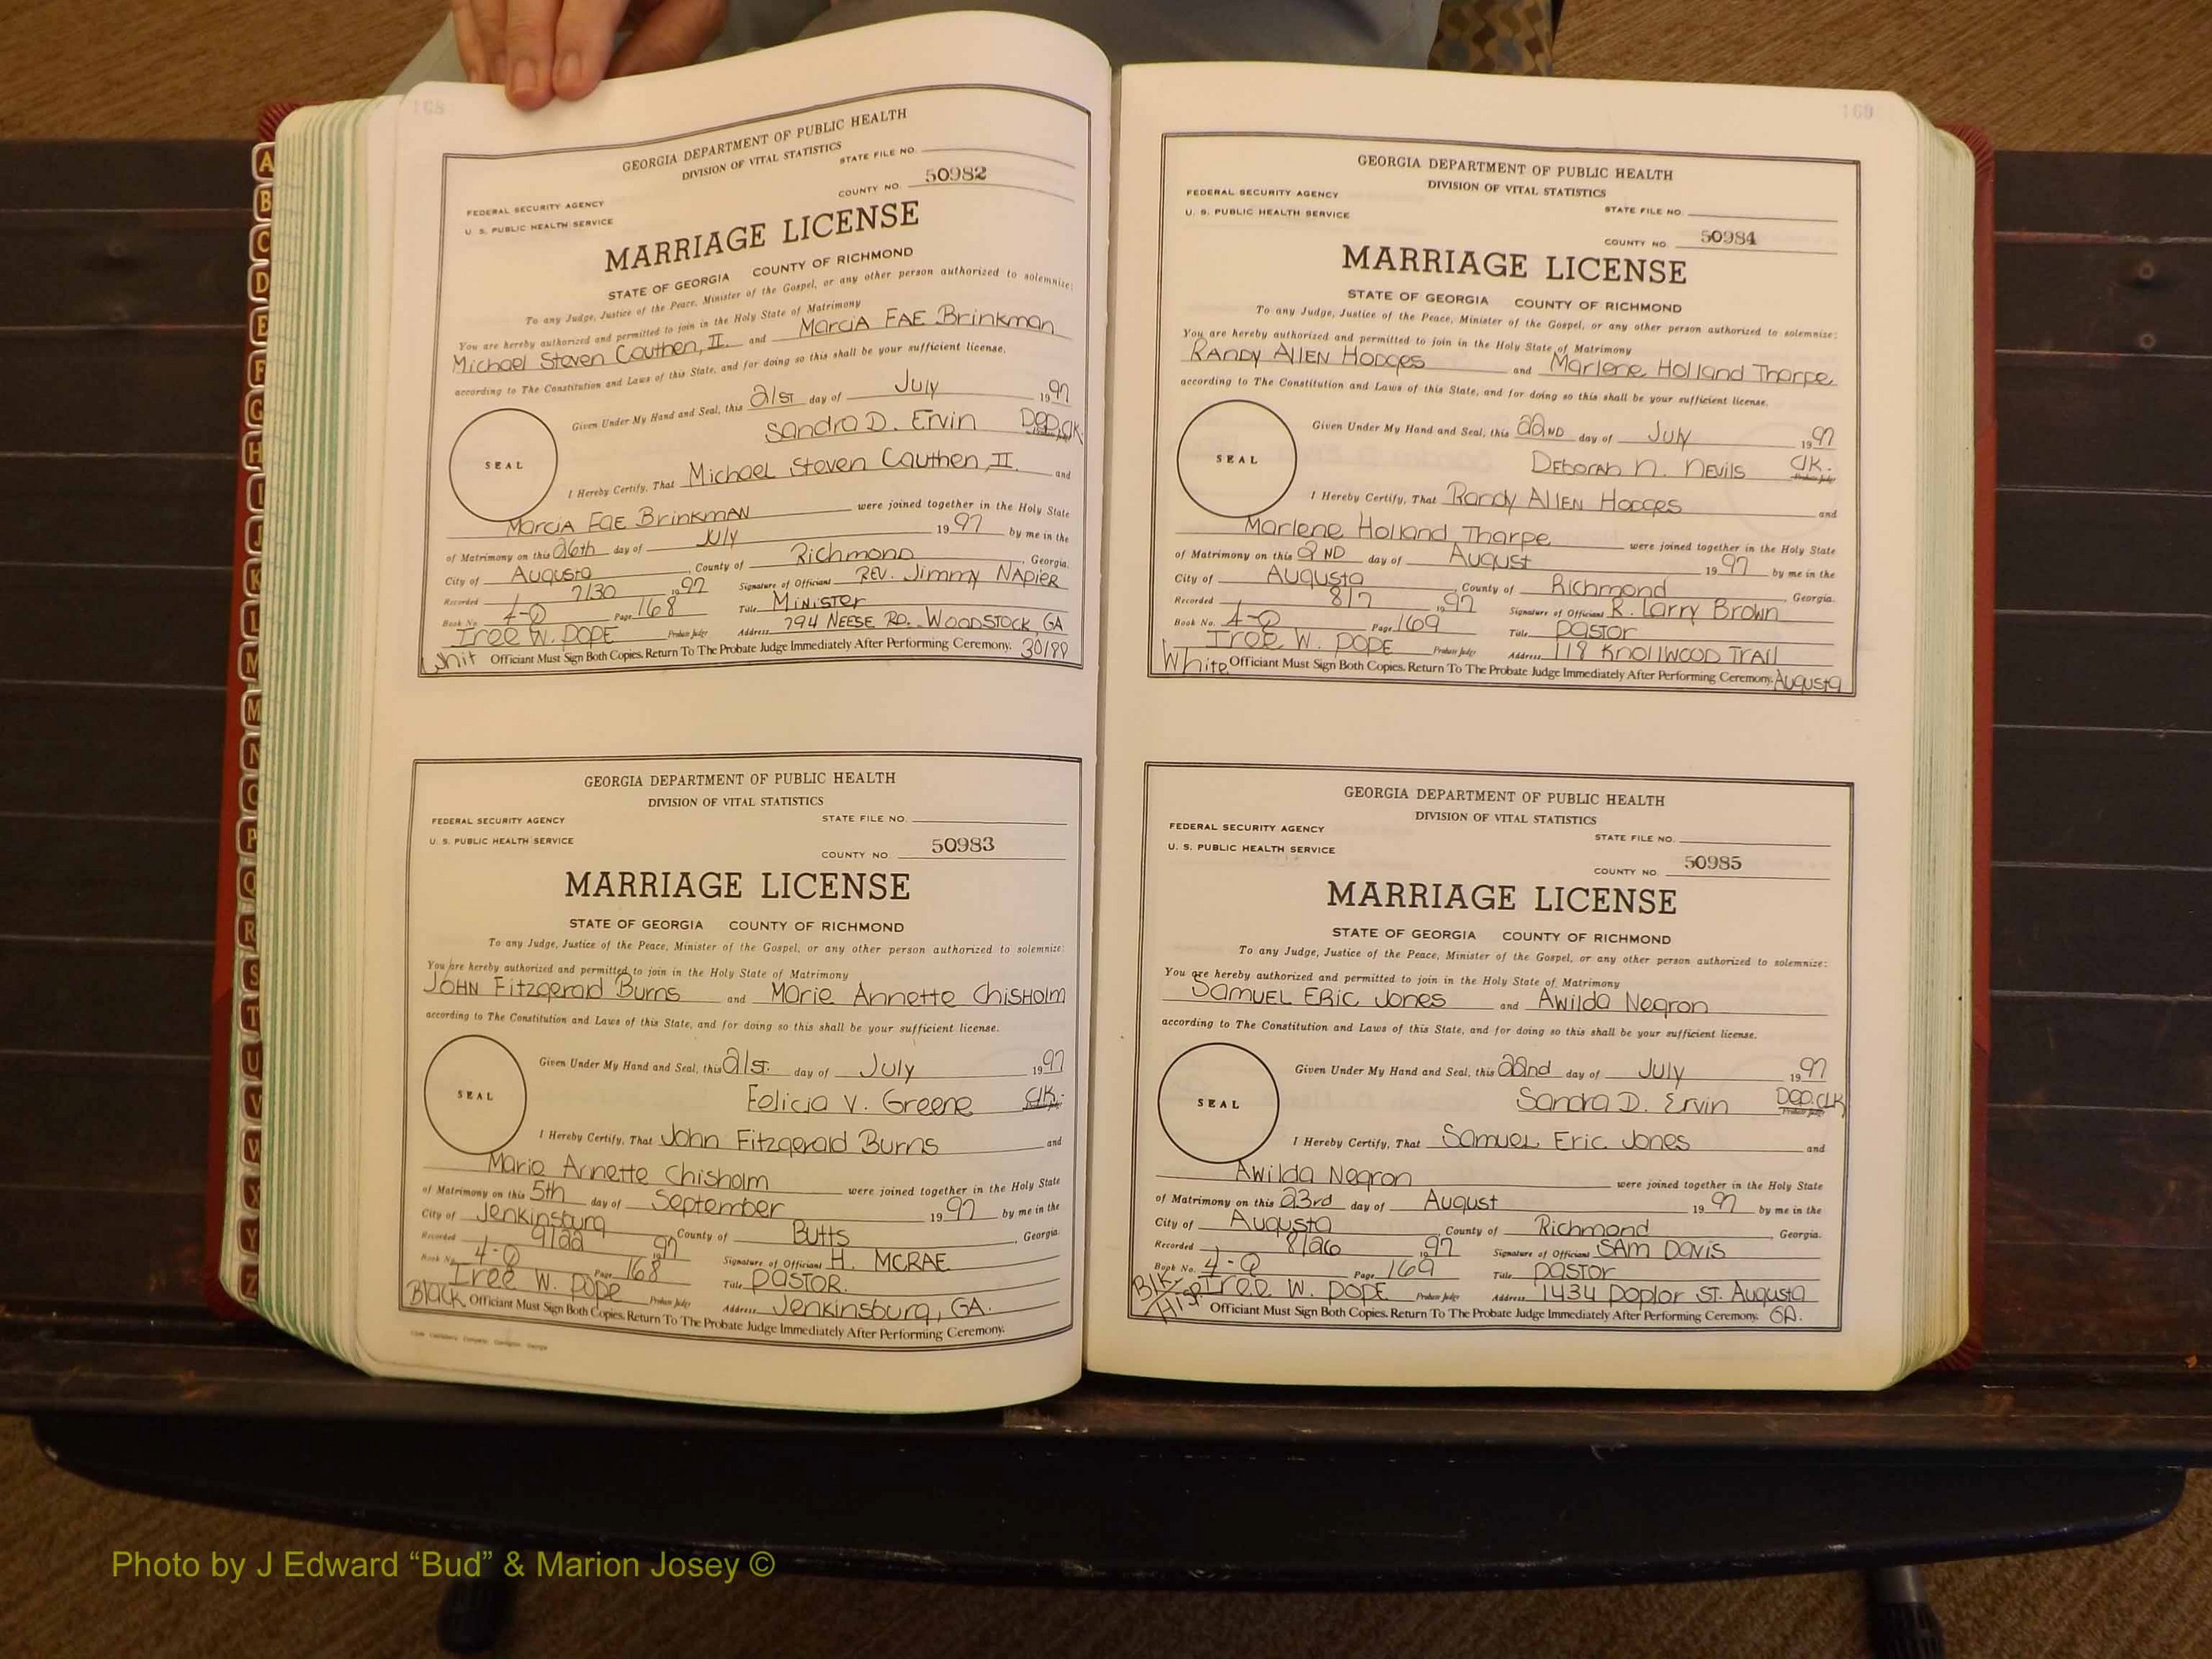 168
GEORGIA DEPARTMENT OF PUBLIC HEALTH
DIVISION OF VITAL STATISTICS
STATE FILE NO.
COUNTY NO. 50982
FEDERAL SECURITY AGENCY
U. S. PUBLIC HEALTH SERVICE
MARRIAGE LICENSE
STATE OF GEORGIA COUNTY OF RICHMOND
To any Judge, Justice of the Peace, Minister of the Gospel, or any other person authorized to solemnize:
You are hereby authorized and permitted to join in the Holy State of Matrimony
Michael Steven Cauthen, II and Marcia FAE Brinkman
according to The Constitution and Laws of this State, and for doing so this shall be your sufficient license.
Given Under My Hand and Seal, this 21st day of July 1997
Sandra D. Ervin Dep. Clk.
SEAL
I Hereby Certify, That Michael Steven Cauthen, II and
Marcia Fae Brinkman were joined together in the Holy State
of Matrimony on this 26th day of July 1997 by me in the
City of Augusta, County of Richmond, Georgia.
Recorded 7/30 1997 Signature of Officiant REV. Jimmy NAPIER
Book No. 4-Q Page 168 Title Minister
Iree W. POPE Probate Judge Address 794 NEESE RD. WOODSTOCK, GA
Whit Officiant Must Sign Both Copies. Return To The Probate Judge Immediately After Performing Ceremony. 30188
GEORGIA DEPARTMENT OF PUBLIC HEALTH
DIVISION OF VITAL STATISTICS
FEDERAL SECURITY AGENCY
STATE FILE NO.
U. S. PUBLIC HEALTH SERVICE
COUNTY NO. 50983
MARRIAGE LICENSE
STATE OF GEORGIA COUNTY OF RICHMOND
To any Judge, Justice of the Peace, Minister of the Gospel, or any other person authorized to solemnize:
You are hereby authorized and permitted to join in the Holy State of Matrimony
JOHN Fitzgerald Burns and Marie Annette Chisholm
according to The Constitution and Laws of this State, and for doing so this shall be your sufficient license.
Given Under My Hand and Seal, this 21st. day of July 1997
Felicia V. Greene Clk.
SEAL
I Hereby Certify, That John Fitzgerald Burns and
Marie Annette Chisholm were joined together in the Holy State
of Matrimony on this 5th day of September 1997 by me in the
City of Jenkinsburg, County of Butts, Georgia.
Recorded 9/22 1997 Signature of Officiant H. MCRAE
Book No. 4-Q Page 168 Title PASTOR.
Iree W. Pope Probate Judge Address Jenkinsburg, GA.
Black Officiant Must Sign Both Copies. Return To The Probate Judge Immediately After Performing Ceremony.
169
GEORGIA DEPARTMENT OF PUBLIC HEALTH
DIVISION OF VITAL STATISTICS
FEDERAL SECURITY AGENCY
STATE FILE NO.
U. S. PUBLIC HEALTH SERVICE
COUNTY NO. 50984
MARRIAGE LICENSE
STATE OF GEORGIA COUNTY OF RICHMOND
To any Judge, Justice of the Peace, Minister of the Gospel, or any other person authorized to solemnize:
You are hereby authorized and permitted to join in the Holy State of Matrimony
RANDY AllEN HODGES and Marlene Holland Tharpe
according to The Constitution and Laws of this State, and for doing so this shall be your sufficient license.
Given Under My Hand and Seal, this 22ND day of July 1997
DEborah N. NEvils Clk.
SEAL
I Hereby Certify, That Randy AllEN Hodges and
Marlene Holland Tharpe were joined together in the Holy State
of Matrimony on this 2ND day of August 1997 by me in the
City of Augusta, County of Richmond, Georgia.
Recorded 8/7 1997 Signature of Officiant R. Larry Brown
Book No. 4-Q Page 169 Title PASTOR
Iree W. POPE Probate Judge Address 118 KNOLLWOOD TRAIl
White Officiant Must Sign Both Copies. Return To The Probate Judge Immediately After Performing Ceremony. Augusta
GEORGIA DEPARTMENT OF PUBLIC HEALTH
DIVISION OF VITAL STATISTICS
FEDERAL SECURITY AGENCY
STATE FILE NO.
U. S. PUBLIC HEALTH SERVICE
COUNTY NO. 50985
MARRIAGE LICENSE
STATE OF GEORGIA COUNTY OF RICHMOND
To any Judge, Justice of the Peace, Minister of the Gospel, or any other person authorized to solemnize:
You are hereby authorized and permitted to join in the Holy State of Matrimony
SAMUEL ERIC Jones and Awilda Negron
according to The Constitution and Laws of this State, and for doing so this shall be your sufficient license.
Given Under My Hand and Seal, this 22nd day of July 1997
Sandra D. Ervin Dep. Clk
SEAL
I Hereby Certify, That Samuel Eric Jones and
Awilda Negron were joined together in the Holy State
of Matrimony on this 23rd day of August 1997 by me in the
City of Augusta, County of Richmond, Georgia.
Recorded 8/26 1997 Signature of Officiant SAM DAVIS
Book No. 4-Q Page 169 Title PASTOR
Iree W. POPE Probate Judge Address 1434 Poplar ST. Augusta
Blk/Hisp Officiant Must Sign Both Copies. Return To The Probate Judge Immediately After Performing Ceremony. GA.
A
B
C
D
E
F
G
H
I
J
K
L
M
M
N
O
P
Q
R
S
T
U
V
W
X
Y
Z
Photo by J Edward “Bud” & Marion Josey ©